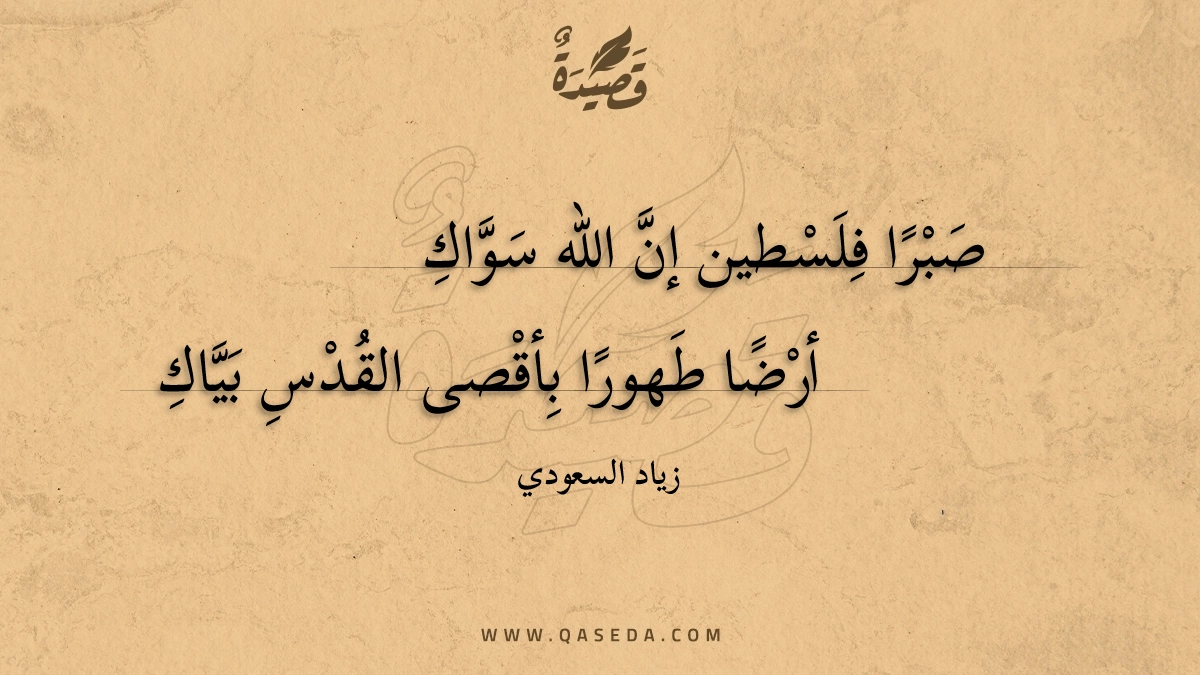 قَصِيدَةٌ
صَبْرًا فِلَسْطين إنَّ الله سَوَّاكِ
أرْضًا طَهورًا بِأقْصى القُدْسِ بَيَّاكِ
زياد السعودي
WWW.QASEDA.COM